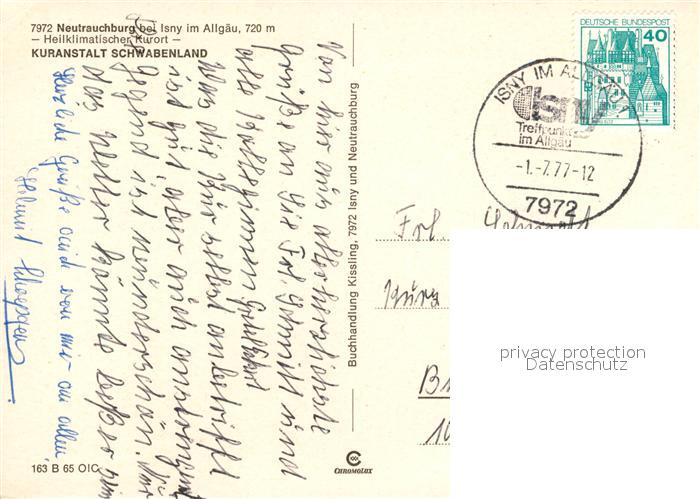 7972 Neutrauchburg bei Isny im Allgäu, 720 m
— Heilklimatischer Kurort —
KURANSTALT SCHWABENLAND
Von hier aus allerherzlichste
Grüße an die Frl. und
alle Kolleginnen.
Was die Kur selbst anbetrifft
ist gut aber auch anstrengend
Gegend ist wunderschön. Nur
das Wetter könnte besser sein
Herzliche Grüße auch von mir an alle
Helmut
Buchhandlung Kissling, 7972 Isny und Neutrauchburg
DEUTSCHE BUNDESPOST
40
ISNY IM ALLGÄU
isny
Treffpunkt
im Allgäu
-1.-7.77-12
7972
Frl.
privacy protection
Datenschutz
163 B 65 OIC
CHROMOLUX